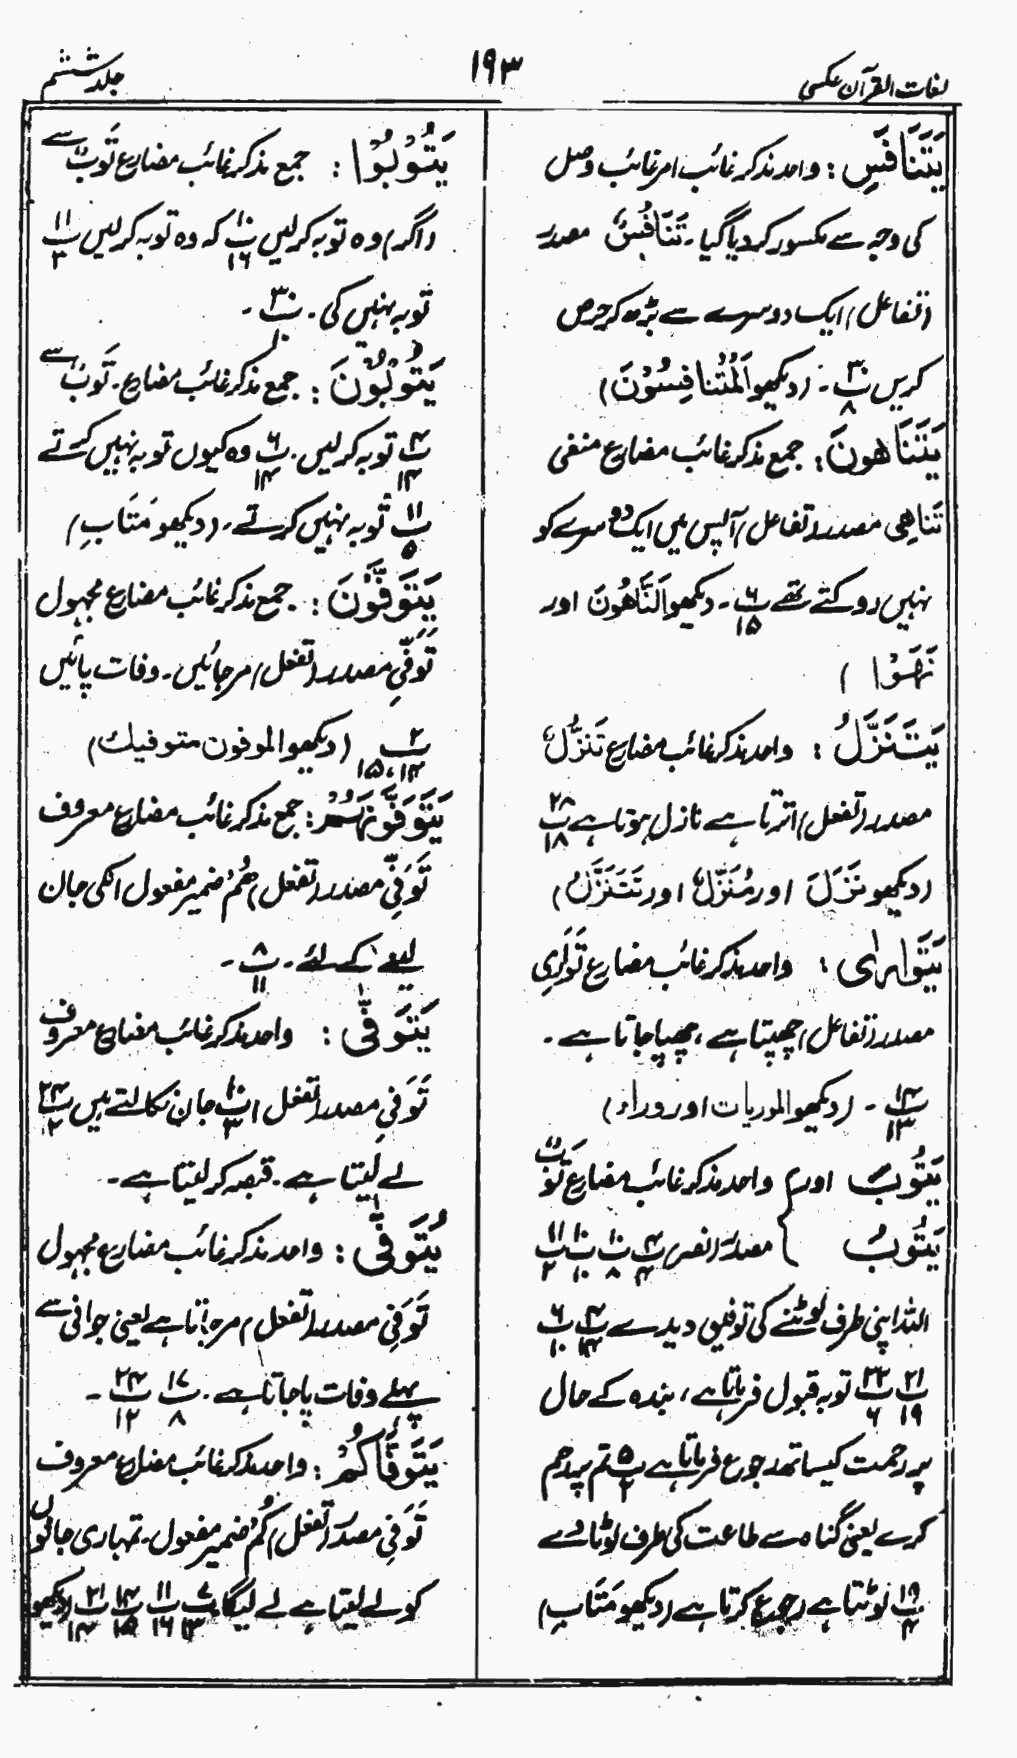 لغات القرآن عکسی
۱۹۳
جلد ششم
یَتَنَافَسِ : واحد مذکر غائب امر غائب وصل
کی وجہ سے مکسور کر دیا گیا ۔ تَنَافُسٌ مصدر
(تفاعل) ایک دوسرے سے بڑھ کر حرص
کریں پ۳۰/۸ ۔ (دیکھو اَلْمُتَنَافِسُوْنَ)
یَتَنَاھَونَ : جمع مذکر غائب مضارع منفی
تَناھِی مصدر (تفاعل) آپس میں ایک دوسرے کو
نہیں روکتے تھے پ۶/۱۵ ۔ دیکھو اَلنَّاھُونَ اور
نَهَوْا )
یَتَنَزَّلُ : واحد مذکر غائب مضارع تَنَزُّلٌ
مصدر (تفعل) اترتا ہے نازل ہوتا ہے پ۲۸/۱۸
(دیکھو نَزَلَ اور مُنَزِّلٌ اور تَتَنَزَّلُ)
یَتَوَارٰی : واحد مذکر غائب مضارع تَوَارِی
مصدر (تفاعل) چھپتا ہے ، چھپا جاتا ہے ۔
پ۱۴/۱۳ ۔ (دیکھو الموریات اور وراء)
یَتُوْبَ اور } واحد مذکر غائب مضارع تَوْبٌ
یَتُوبُ } مصدر (نصر) پ۴/۴ پ۱۰/۸ پ۱۰/۱۰ پ۱۱/۲
اللہ اپنی طرف لوٹنے کی توفیق دیدے پ۴/۱۴ پ۶/۱۰
پ۲۱/۱۹ پ۲۲/۶ توبہ قبول فرماتا ہے ، بندہ کے حال
پر رحمت کیساتھ رجوع فرماتا ہے پ۵/۲ تم پر رحم
کرے یعنی گناہ سے طاعت کی طرف لوٹا دے
پ۱۹/۴ لوٹتا ہے رجوع کرتا ہے (دیکھو مَتَابِ)
یَتُوْبُوْا : جمع مذکر غائب مضارع تَوْبٌ سے
(اگر) وہ توبہ کرلیں پ۱۰/۱۶ کہ وہ توبہ کرلیں پ۱۱/۳
توبہ نہیں کی ۔ پ۳۰/۱۰ ۔
یَتُوْبُوْنَ : جمع مذکر غائب مضارع ۔ تَوْبٌ سے
پ۴/۱۴ توبہ کرلیں ۔ پ۶/۱۴ وہ کیوں توبہ نہیں کرتے
پ۱۱/۵ توبہ نہیں کرتے ۔ (دیکھو مَتَابِ)
یُتَوَفَّوْنَ : جمع مذکر غائب مضارع مجہول
تَوَفِّی مصدر (تفعل) مرجائیں ۔ وفات پائیں
پ۲/۱۴،۱۵ (دیکھو الموفون متوفیك)
یَتَوَفَّوْنَهُمْ : جمع مذکر غائب مضارع معروف
تَوَفِّی مصدر (تفعل) ھُمْ ضمیر مفعول انکی جان
لینے کے لئے ۔ پ۸/۱۱ ۔
یَتَوَفّٰی : واحد مذکر غائب مضارع معروف
تَوَفِّی مصدر (تفعل) پ۱۰/۳ جان نکالتے ہیں پ۲۴/۲
لے لیتا ہے ۔ قبضہ کرلیتا ہے ۔
یُتَوَفّٰی : واحد مذکر غائب مضارع مجہول
تَوَفِّی مصدر (تفعل) مرجاتا ہے یعنی جوانی سے
پہلے وفات پا جاتا ہے ۔ پ۱۷/۸ پ۲۴/۱۲ ۔
یَتَوَفَّاکُمْ : واحد مذکر غائب مضارع معروف
تَوَفِّی مصدر (تفعل) کُمْ ضمیر مفعول ۔ تمہاری جانوں
کو لے لیتا ہے لے لیگا پ۷/۱۳ پ۱۱/۱۶ پ۱۴/۱۵ پ۲۱/۱۴ (دیکھو